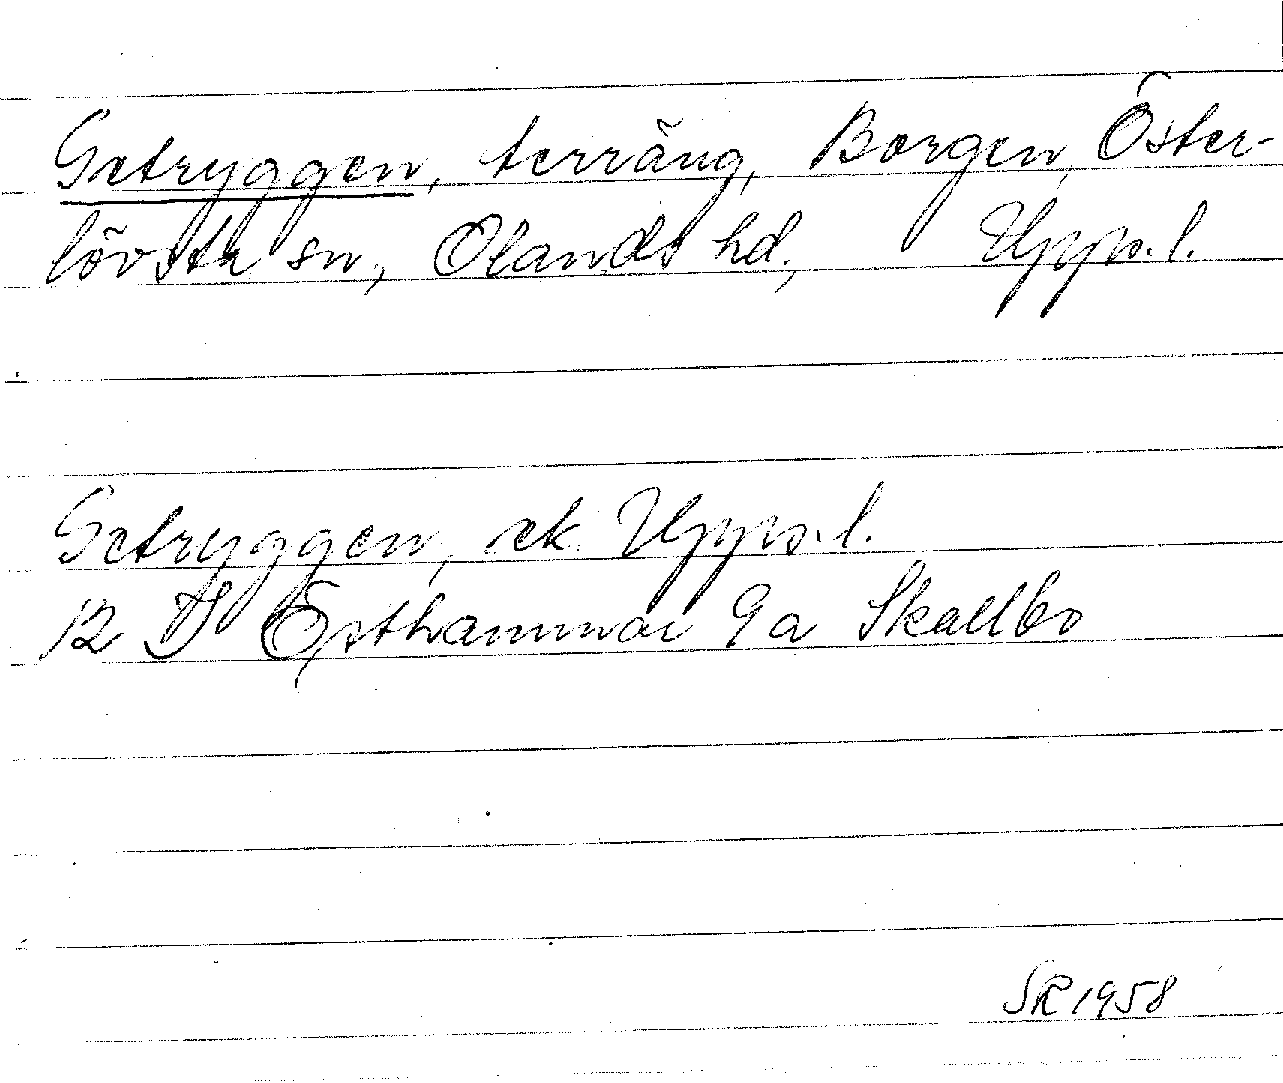 Getryggen, terräng, Borgen, Öster-
lövsta sn, Olands hd, Upps.l.
Getryggen, ek. Upps.l.
12 I Östhammar 9a Skallbo
SR 1958